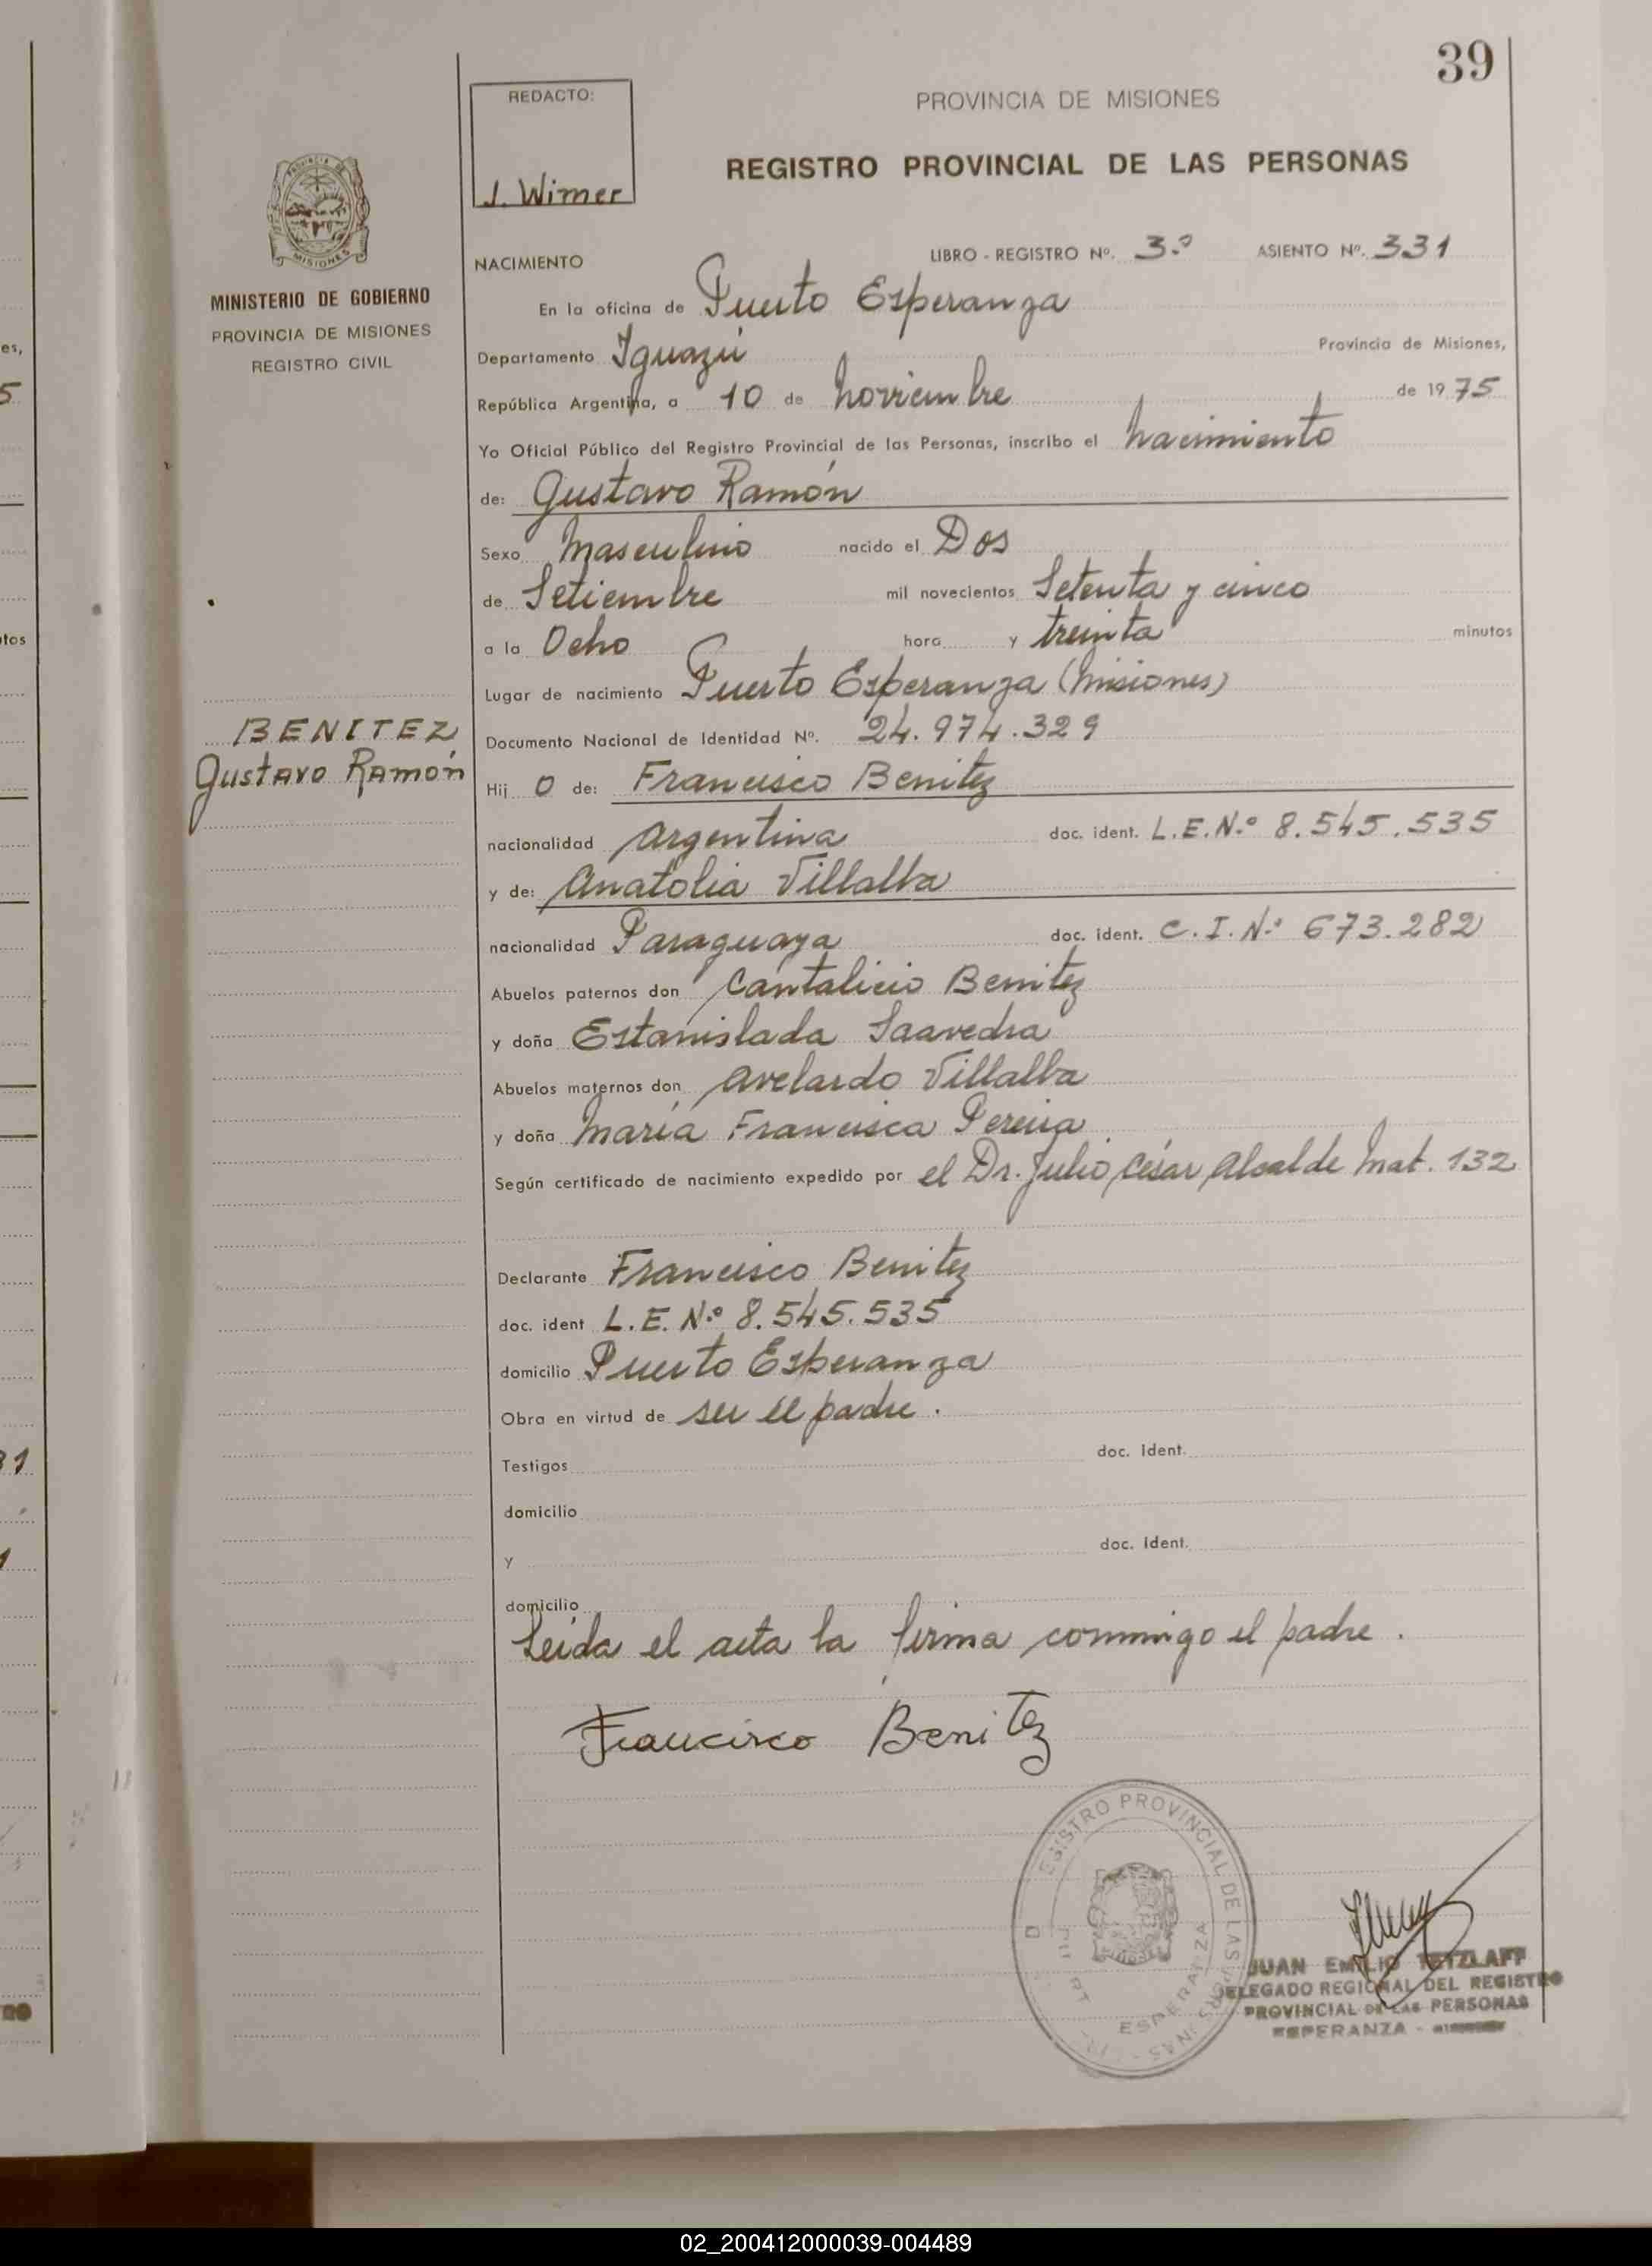 39
REDACTO:
J. Wimer
PROVINCIA DE MISIONES
REGISTRO PROVINCIAL DE LAS PERSONAS
MISIONES
MINISTERIO DE GOBIERNO
PROVINCIA DE MISIONES
REGISTRO CIVIL
NACIMIENTO LIBRO - REGISTRO Nº. 3.º ASIENTO Nº. 331
En la oficina de Puerto Esperanza
Departamento Iguazú Provincia de Misiones,
República Argentina, a 10 de noviembre de 1975
Yo Oficial Público del Registro Provincial de las Personas, inscribo el nacimiento
de: Gustavo Ramón
Sexo Masculino nacido el Dos
de Setiembre mil novecientos Setenta y cinco
a la Ocho hora y treinta minutos
Lugar de nacimiento Puerto Esperanza (Misiones)
BENITEZ
Gustavo Ramón
Documento Nacional de Identidad Nº. 24.974.329
Hij o de: Francisco Benitez
nacionalidad Argentina doc. ident. L.E.N.º 8.545.535
y de: Anatolia Villalba
nacionalidad Paraguaya doc. ident. C.I.N.º 673.282
Abuelos paternos don Cantalicio Benitez
y doña Estanislada Saavedra
Abuelos maternos don Avelardo Villalba
y doña María Francisca Pereira
Según certificado de nacimiento expedido por el Dr. Julio César Alcalde Mat. 132
Declarante Francisco Benitez
doc. ident L.E. N.º 8.545.535
domicilio Puerto Esperanza
Obra en virtud de ser el padre.
Testigos doc. ident.
domicilio
y doc. ident.
domicilio
Leída el acta la firma conmigo el padre.
Francisco Benitez
REGISTRO PROVINCIAL DE LAS PERSONAS
ESPERANZA
JUAN EMILIO TETZLAFF
DELEGADO REGIONAL DEL REGISTRO
PROVINCIAL DE LAS PERSONAS
ESPERANZA -
02_200412000039-004489